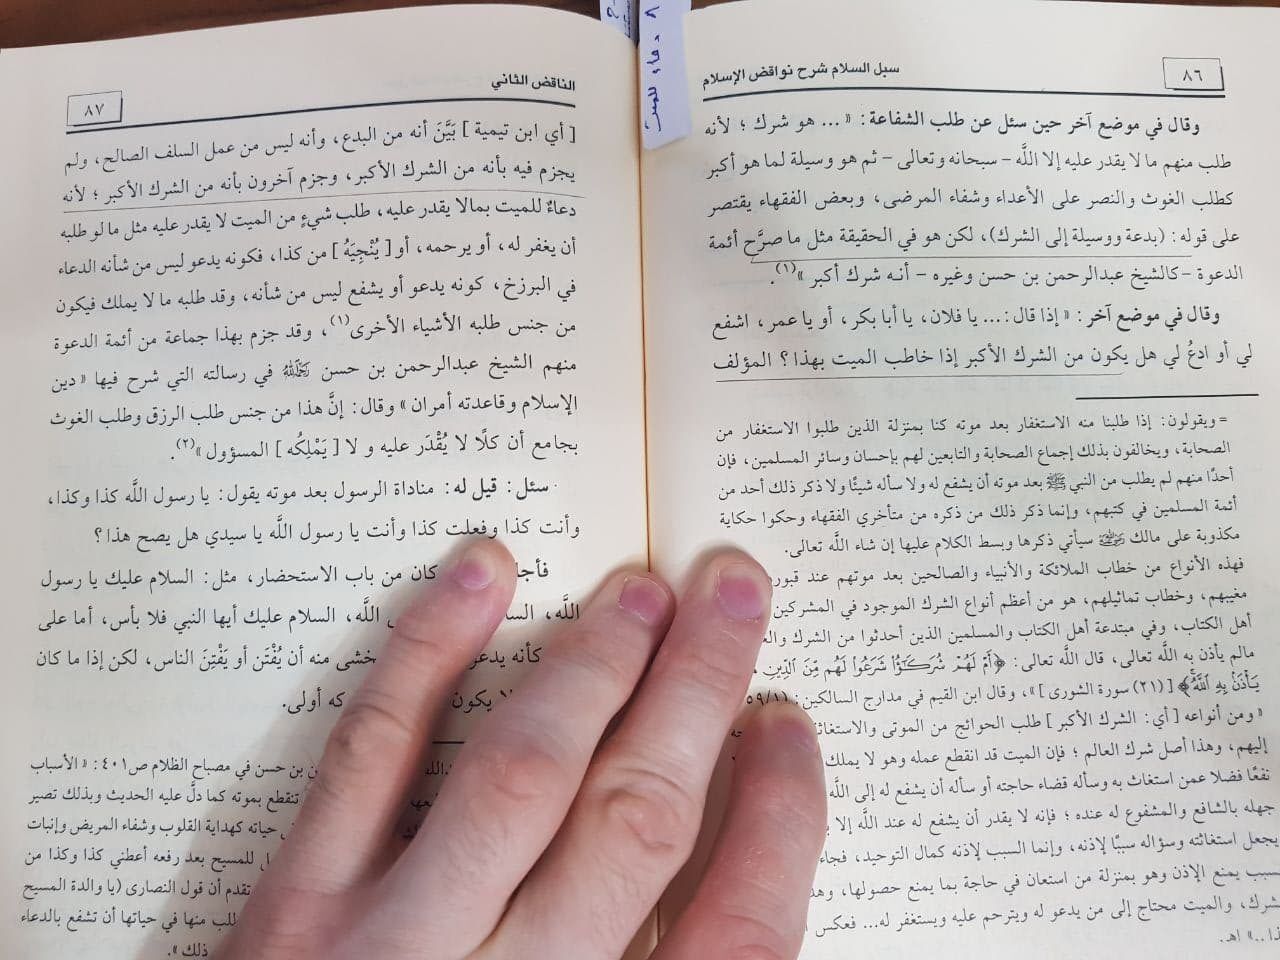 ٨ دعاء للميت
سبل السلام شرح نواقض الإسلام
٨٦
وقال في موضع آخر حين سئل عن طلب الشفاعة: «... هو شرك؛ لأنه
طلب منهم ما لا يقدر عليه إلا اللَّه – سبحانه وتعالى – ثم هو وسيلة لما هو أكبر
كطلب الغوث والنصر على الأعداء وشفاء المرضى، وبعض الفقهاء يقتصر
على قوله: (بدعة ووسيلة إلى الشرك)، لكن هو في الحقيقة مثل ما صرَّح أئمة
الدعوة –كالشيخ عبدالرحمن بن حسن وغيره – أنه شرك أكبر»(١).
وقال في موضع آخر: «إذا قال:... يا فلان، يا أبا بكر، أو يا عمر، اشفع
لي أو ادعُ لي هل يكون من الشرك الأكبر إذا خاطب الميت بهذا؟ المؤلف
= ويقولون: إذا طلبنا منه الاستغفار بعد موته كنا بمنزلة الذين طلبوا الاستغفار من
الصحابة، ويخالفون بذلك إجماع الصحابة والتابعين لهم بإحسان وسائر المسلمين، فإن
أحدًا منهم لم يطلب من النبي ﷺ بعد موته أن يشفع له ولا سأله شيئًا ولا ذكر ذلك أحد من
أئمة المسلمين في كتبهم، وإنما ذكر ذلك من ذكره من متأخري الفقهاء وحكوا حكاية
مكذوبة على مالك سيأتي ذكرها وبسط الكلام عليها إن شاء اللَّه تعالى.
فهذه الأنواع من خطاب الملائكة والأنبياء والصالحين بعد موتهم عند قبور
مغيبهم، وخطاب تماثيلهم، هو من أعظم أنواع الشرك الموجود في المشركين
أهل الكتاب، وفي مبتدعة أهل الكتاب والمسلمين الذين أحدثوا من الشرك
مالم يأذن به اللَّه تعالى، قال اللَّه تعالى: ﴿أَمْ لَهُمْ شُرَكَٰٓؤُاْ شَرَعُواْ لَهُم مِّنَ ٱلدِّينِ
يَأْذَنۢ بِهِ ٱللَّهُۚ﴾ [(٢١) سورة الشورى]»، وقال ابن القيم في مدارج السالكين:
«ومن أنواعه [أي: الشرك الأكبر] طلب الحوائج من الموتى والاستغاثة
إليهم، وهذا أصل شرك العالم؛ فإن الميت قد انقطع عمله وهو لا يملك
نفعًا فضلا عمن استغاث به وسأله قضاء حاجته أو سأله أن يشفع له إلى اللَّه
جهله بالشافع والمشفوع له عنده؛ فإنه لا يقدر أن يشفع له عند اللَّه إلا
يجعل استغاثته وسؤاله سببًا لإذنه، وإنما السبب لإذنه كمال التوحيد،
يمنع الإذن وهو بمنزلة من استعان في حاجة بما يمنع حصولها،
والميت محتاج إلى من يدعو له ويترحم عليه ويستغفر له...
..» اهـ.
الناقض الثاني
٨٧
[أي ابن تيمية] بَيَّنَ أنه من البدع، وأنه ليس من عمل السلف الصالح، ولم
يجزم فيه بأنه من الشرك الأكبر، وجزم آخرون بأنه من الشرك الأكبر؛ لأنه
دعاءٌ للميت بمالا يقدر عليه، طلب شيءٍ من الميت لا يقدر عليه مثل ما لو طلبه
أن يغفر له، أو يرحمه، أو [يُنْجِيَهُ] من كذا، فكونه يدعو ليس من شأنه الدعاء
في البرزخ، كونه يدعو أو يشفع ليس من شأنه، وقد طلبه ما لا يملك فيكون
من جنس طلبه الأشياء الأخرى(١)، وقد جزم بهذا جماعة من أئمة الدعوة
منهم الشيخ عبدالرحمن بن حسن رَحِمَهُ اللَّهُ في رسالته التي شرح فيها «دين
الإسلام وقاعدته أمران» وقال: إنَّ هذا من جنس طلب الرزق وطلب الغوث
بجامع أن كلًا لا يُقْدَر عليه و لا [يَمْلِكُه] المسؤول»(٢).
سئل: قيل له: مناداة الرسول بعد موته يقول: يا رسول اللَّه كذا وكذا،
وأنت كذا وفعلت كذا وأنت يا رسول اللَّه يا سيدي هل يصح هذا؟
كان من باب الاستحضار، مثل: السلام عليك يا رسول
اللَّه، اللَّه، السلام عليك أيها النبي فلا بأس، أما على
كأنه منه أن يُفْتَن أو يَفْتِنَ الناس، لكن إذا ما كان
لا يكون أولى.
بن حسن في مصباح الظلام ص٤٠١: «الأسباب
تنقطع بموته كما دلَّ عليه الحديث وبذلك تصير
حياته كهداية القلوب وشفاء المريض وإنبات
للمسيح بعد رفعه أعطني كذا وكذا من
تقدم أن قول النصارى (يا والدة المسيح
منها في حياتها أن تشفع بالدعاء
ذلك».